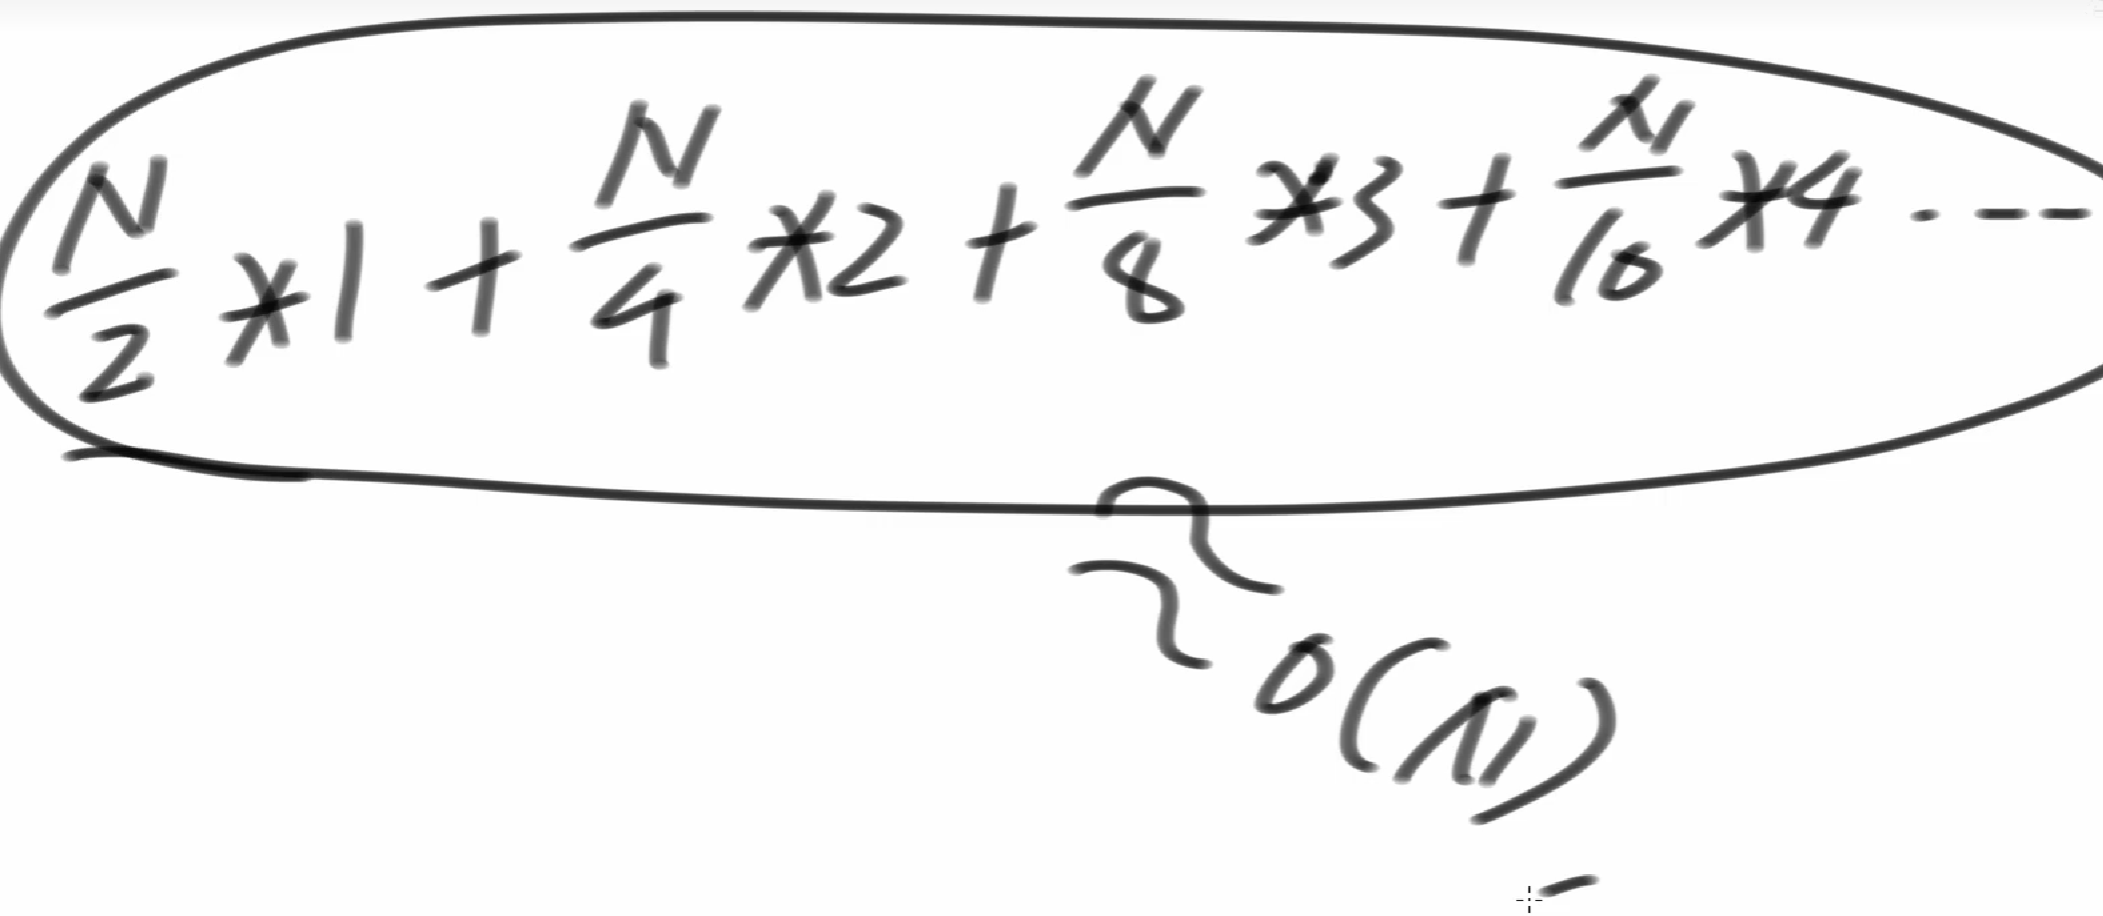 N/2 * 1 + N/4 * 2 + N/8 * 3 + N/16 * 4 . - - -
≈ O(N)